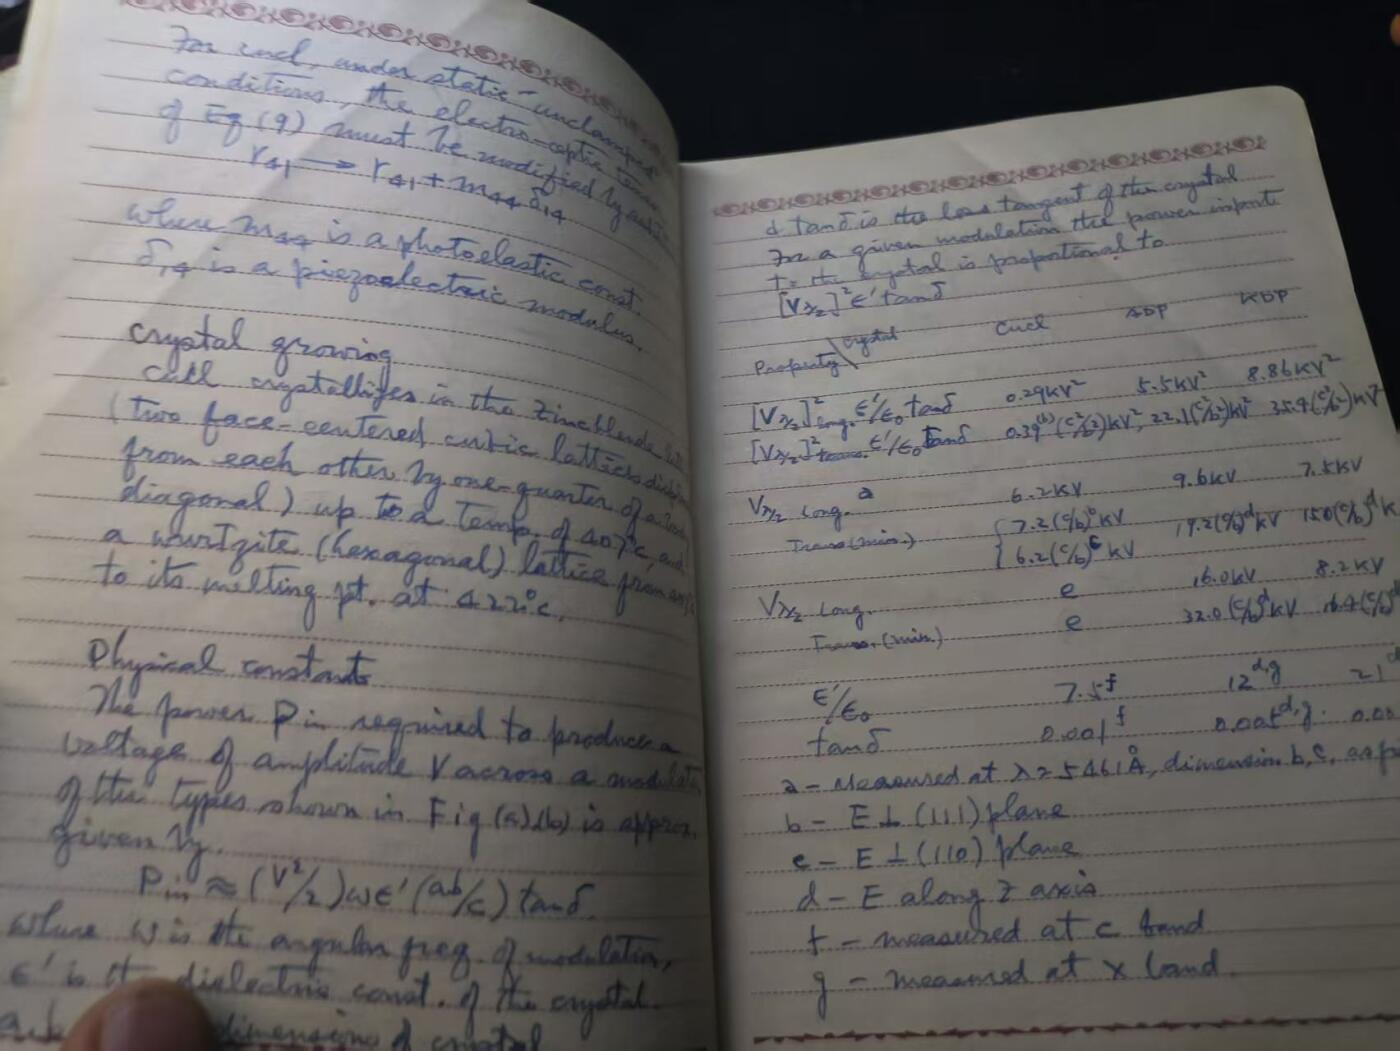 For cucl, under static-unclamped
conditions, the electro-optic
of Eq (9) must be modified by
r₄₁ → r₄₁ + m₄₄ δ₁₄
where m₄₄ is a photoelastic const.
δ₁₄ is a piezoelectric modulus.
crystal growing
crystallizes in the Zincblende
(two face-centered cubic lattices
from each other by one-quarter of a
diagonal) up to a temp. of 407°c, and
a wurtzite (hexagonal) lattice from
to its melting pt. at 422°c.
Physical constants
The power Pin required to produce a
voltage of amplitude V across a
of the types shown in Fig (a),(b) is approx.
given by.
Pin ≈ (V²/2) ωε' (ab/c) tanδ.
where ω is the angular freq. of modulation,
ε' is the dielectric const. of the crystal.
dimensions of crystal
& tanδ is the loss tangent of the crystal
For a given modulation the power
to the crystal is proportional to
[Vλ/2]² ε' tanδ
Property \ crystal Cucl ADP KDP
[Vλ/2]²long. ε'/ε₀ tanδ 0.29KV² 5.5KV² 8.86KV²
[Vλ/2]²trans. ε'/ε₀ tanδ 0.39⁽ᵇ⁾(c²/b²)KV², 22.1(c²/b²)KV² 35.4(c²/b²)KV²
Vλ/2 Long. a 6.2KV 9.6KV 7.5KV
Trans (min.) { 7.2(c/b)ᵇ KV 19.2(c/b)ᵈ KV 15.0(c/b)ᵈ K
{ 6.2(c/b)ᶜ KV
Vλ/2 Long. e 16.0KV 8.2KV
Trans. (min.) e 32.0(c/b)ᵈ KV 16.4(c/b)ᵈ
ε'/ε₀ 7.5ᶠ 12ᵈ·ᵍ 21ᵈ
tanδ 0.001ᶠ
a - Measured at λ = 5461Å, dimension b, c,
b - E ⊥ (111) plane
c - E ⊥ (110) plane
d - E along z axis
f - measured at c band
g - measured at x band.